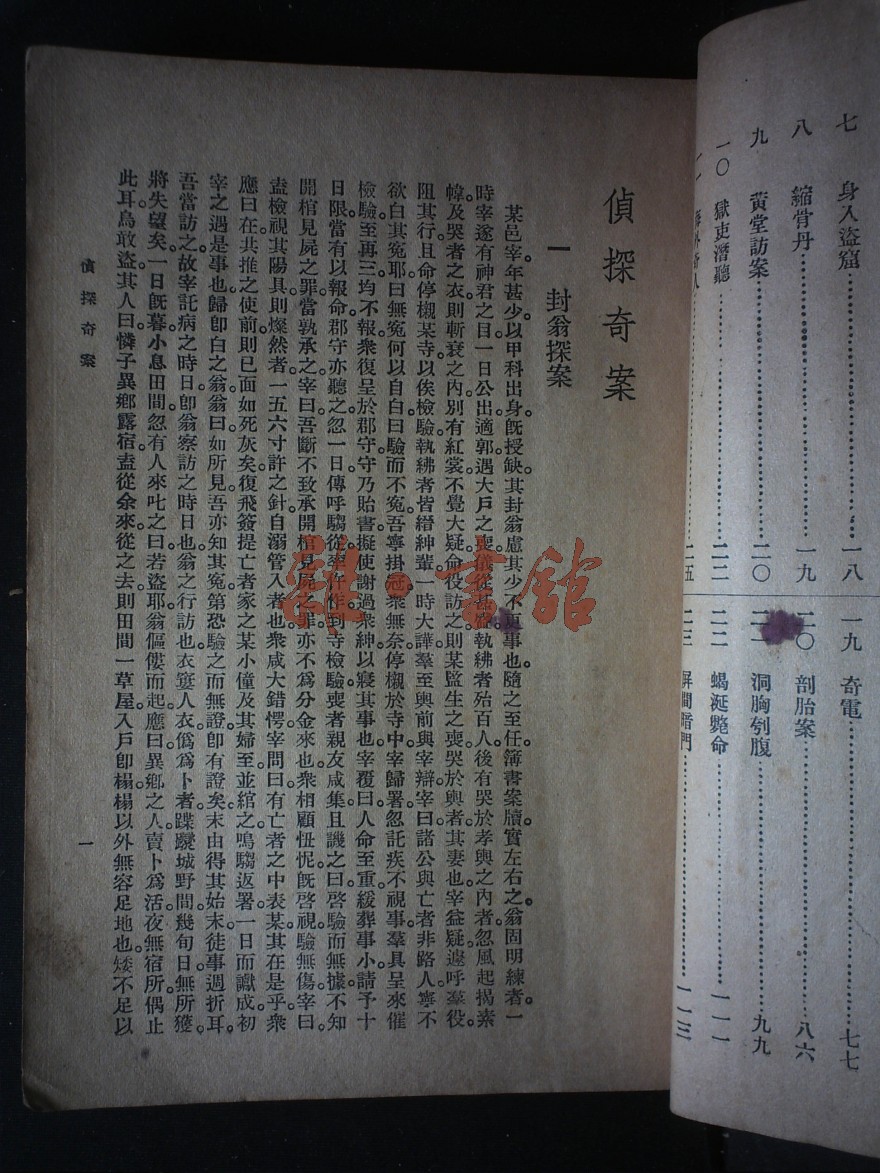 七　身入盜窟……一八
八　縮骨丹……一九
九　黃堂訪案……二〇
一〇　獄吏潛聽……二二
二五
一九　奇電……七七
二〇　剖胎案……八六
洞胸刳腹……九九
二二　蝎涎斃命……一一一
二三　屏間暗門……一一三
偵探奇案
一　封翁探案
某邑宰年甚少。以甲科出身。旣授缺。其封翁慮其少不更事也。隨之至任。簿書案牘。實左右之。翁固明練者。一
時宰遂有神君之目。一日公出適郭。遇大戶之喪。儀從甚盛。執紼者殆百人。後有哭於孝輿之內者。忽風起揭素
幃。及哭者之衣。則斬衰之內。別有紅裳。不覺大疑。命役訪之。則某監生之喪。哭於輿者。其妻也。宰益疑。遽呼羣役
阻其行。且命停櫬某寺以俟檢驗。執紼者皆縉紳輩。一時大譁。羣至輿前與宰辯。宰曰。諸公與亡者非路人。寧不
欲白其冤耶。曰無冤何以自白。曰驗而不冤。吾寧掛冠。衆無奈。停櫬於寺中。宰歸署。忽託疾不視事。羣具呈來催
檢驗。至再三均不報。衆復呈於郡守。守乃貽書。擬使謝過衆紳以寢其事也。宰覆曰。人命至重。緩葬事小。請予十
日限。當有以報命。郡守亦聽之。忽一日傳呼騶從。率仵作到寺檢驗。喪者親友咸集。且譏之曰。啓驗而無據。不知
開棺見屍之罪。當孰承之。宰曰。吾斷不致承開棺見屍之罪。亦不爲分金來也。衆相顧忸怩。旣啓視。驗無傷。宰曰。
盍檢視其陽具。則燦然者。一五六寸許之針。自溺管入者也。衆咸大錯愕。宰問曰。有亡者之中表某。其在是乎。衆
應曰在。共推之使前。則已面如死灰矣。復飛簽提亡者家之某小僮及其婦至。並綰之。鳴騶返署。一日而讞成。初
宰之遇是事也。歸卽白之翁。翁曰。如所見。吾亦知其冤。第恐驗之而無證。卽有證矣。末由得其始末。徒事週折耳。
吾當訪之。故宰託病之時日。卽翁察訪之時日也。翁之行訪也。衣窶人衣。僞爲卜者。蹀躞城野間。幾旬日無所獲。
將失望矣。一日旣暮。小息田間。忽有人來叱之曰。若盜耶。翁傴僂而起。應曰異鄉之人。賣卜爲活。夜無宿所。偶止
此耳。烏敢盜。其人曰。憐子異鄉露宿。盍從余來。從之去。則田間一草屋。入戶卽榻。榻以外無容足地也。矮不足以
偵探奇案
一